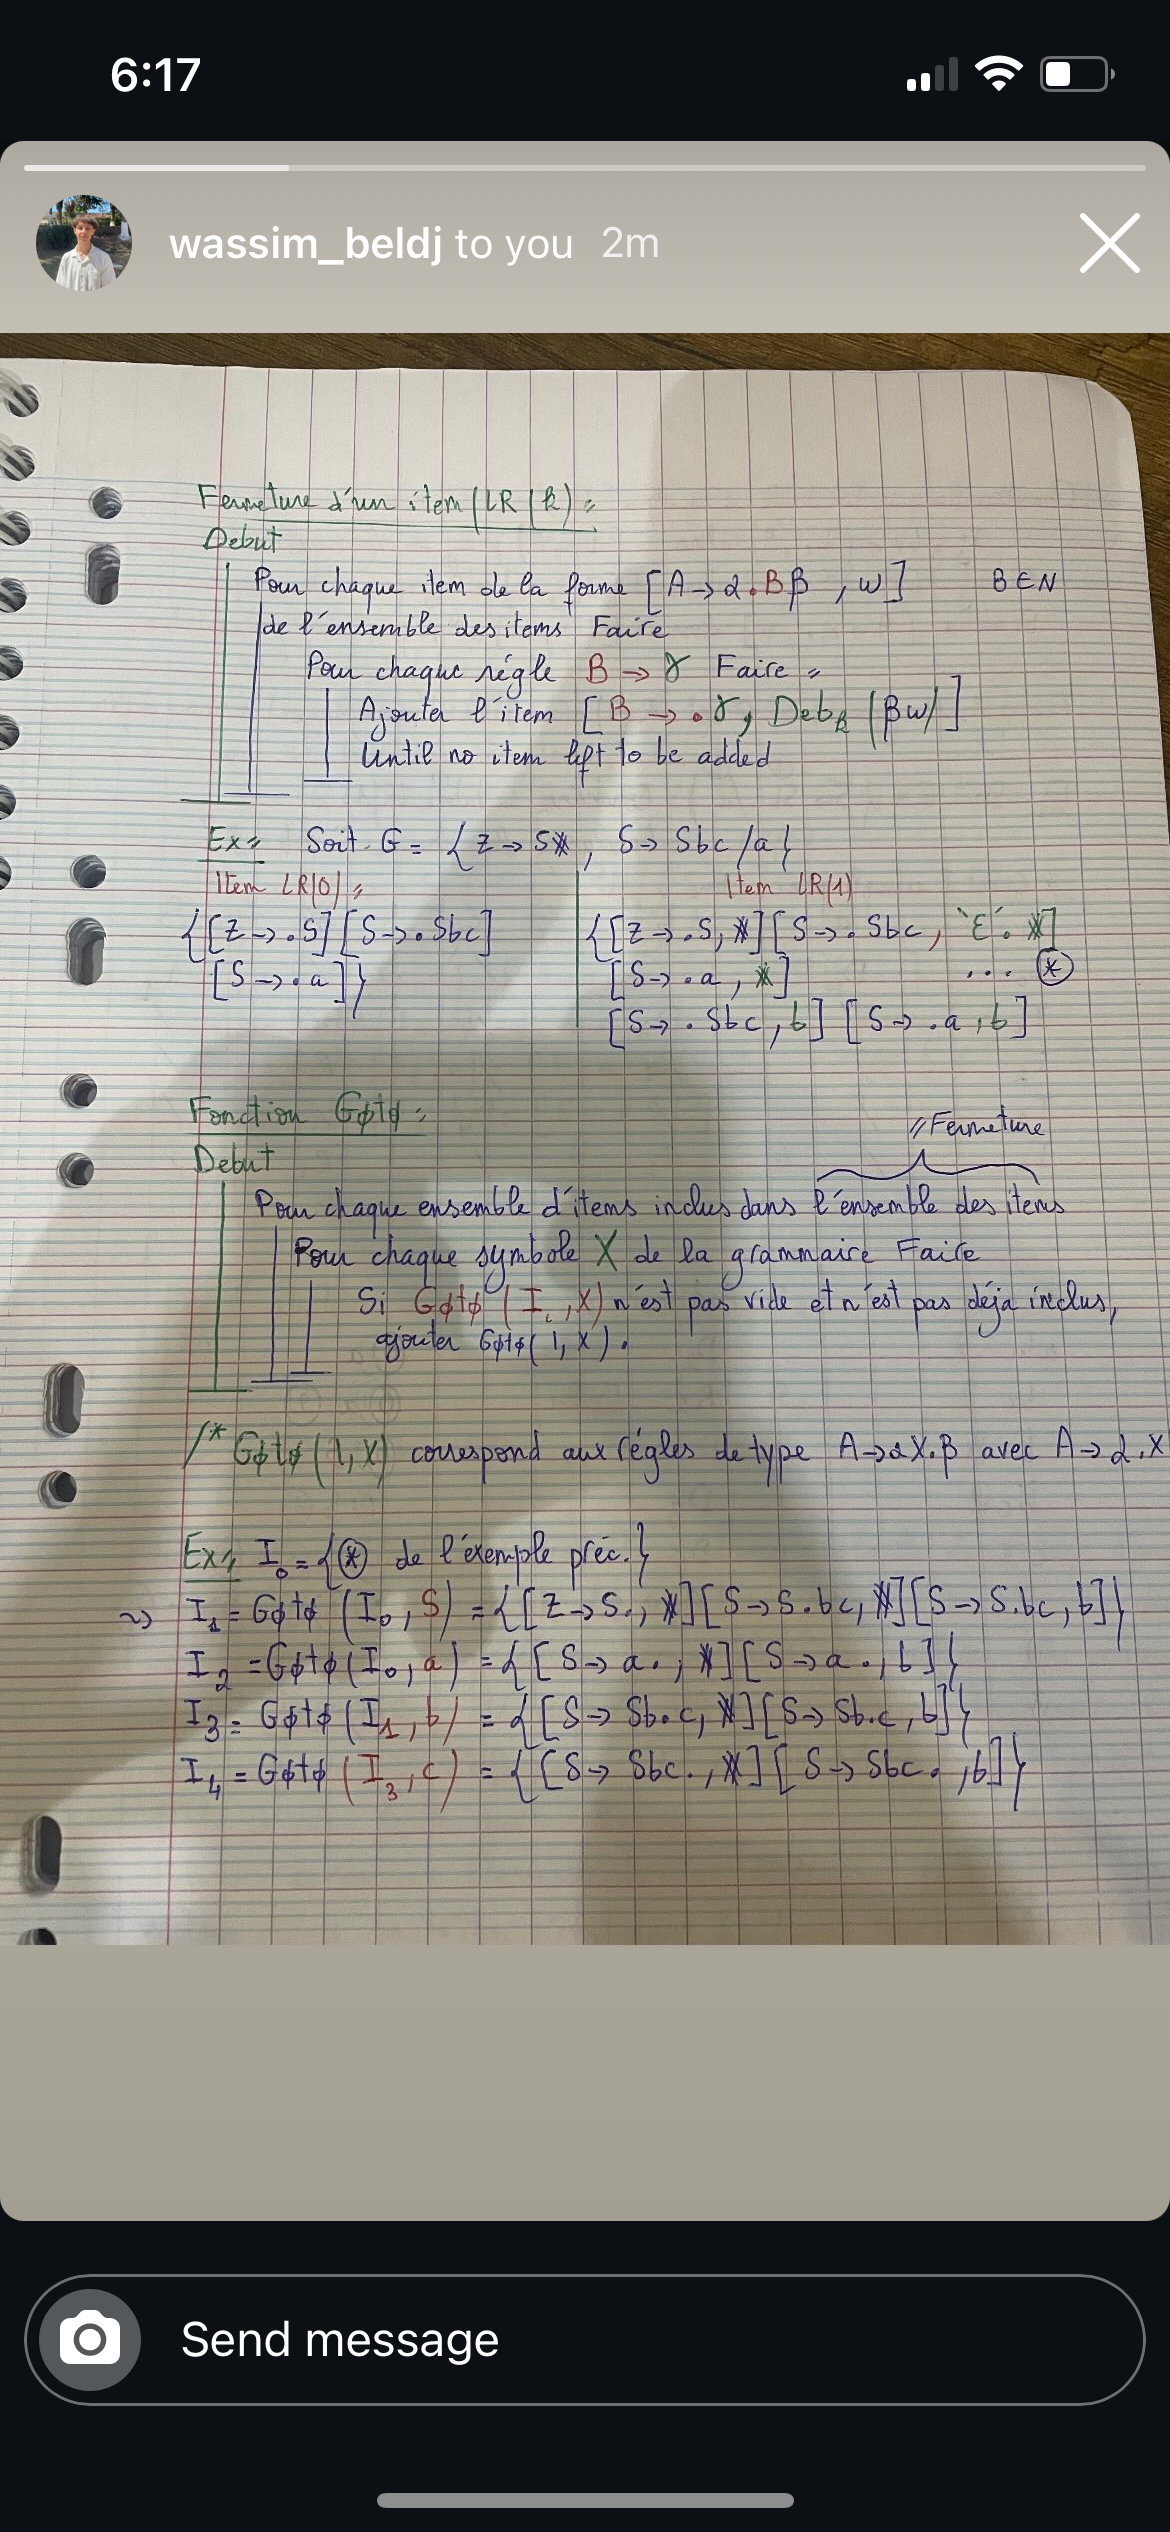 6:17
wassim_beldj to you 2m
Fermeture d'un item (LR(k) =
Debut
Pour chaque item de la forme [A → α.Bβ , w] B ∈ N
de l'ensemble des items Faire
Pour chaque règle B → γ Faire =
Ajouter l'item [B → .γ, Deb_k (βw)]
Until no item left to be added
Ex= Soit G = {Z → S#, S → Sbc/a}
Item LR(0) = Item LR(1)
{[Z → .S][S → .Sbc] {[Z → .S, #][S → .Sbc, 'ε'. #]
[S → .a]} [S → .a, #] ... (*)
[S → .Sbc, b] [S → .a, b]
Fonction Gφtφ =
// Fermeture
Debut
Pour chaque ensemble d'items inclus dans l'ensemble des items
Pour chaque symbole X de la grammaire Faire
Si Gφtφ (I, X) n'est pas vide et n'est pas déja inclus,
ajouter Gφtφ(I, X).
/* Gφtφ(I, X) correspond aux règles de type A → αX.β avec A → α.X
Ex= I₀ = {(*) de l'exemple préc.}
~> I₁ = Gφtφ (I₀, S) = {[Z → S., #][S → S.bc, #][S → S.bc, b]}
I₂ = Gφtφ (I₀, a) = {[S → a., #][S → a., b]}
I₃ = Gφtφ (I₁, b) = {[S → Sb.c, #][S → Sb.c, b]}
I₄ = Gφtφ (I₃, c) = {[S → Sbc., #][S → Sbc., b]}
Send message